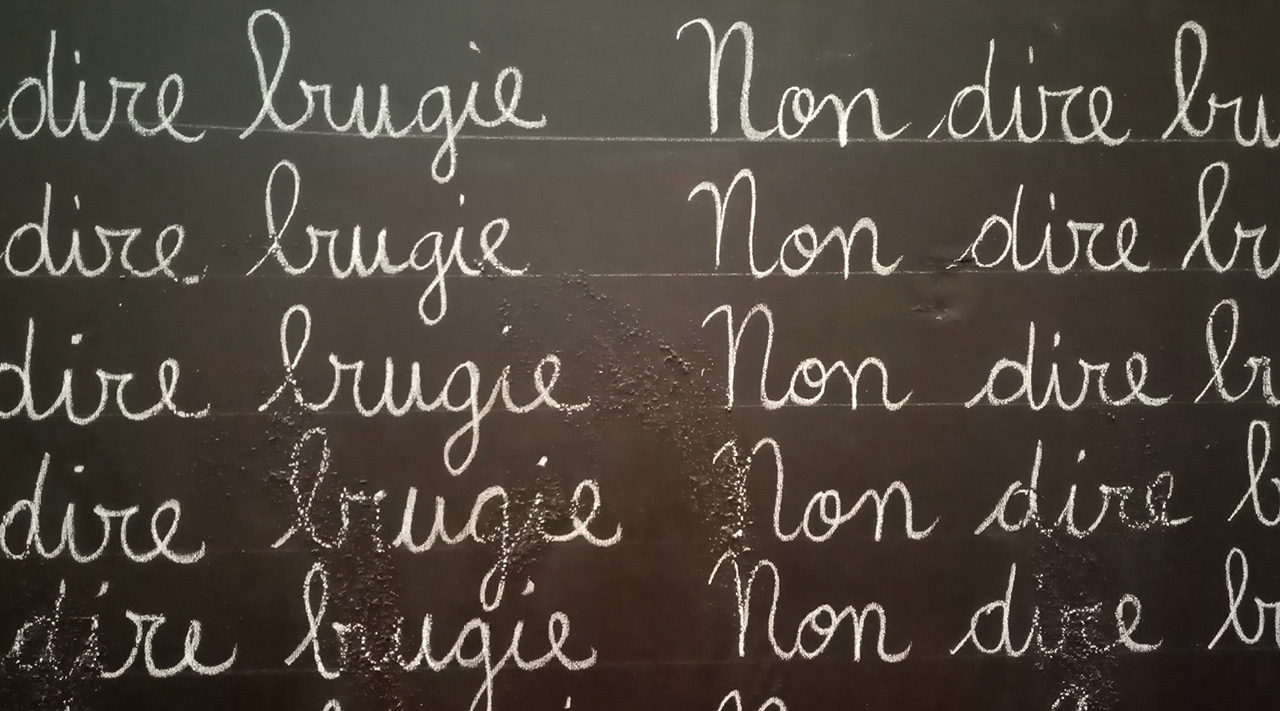 dire brugie Non dire bru
dire brugie Non dire br
dire brugie Non dire br
dire brugie Non dire b
dire brugie Non dire br